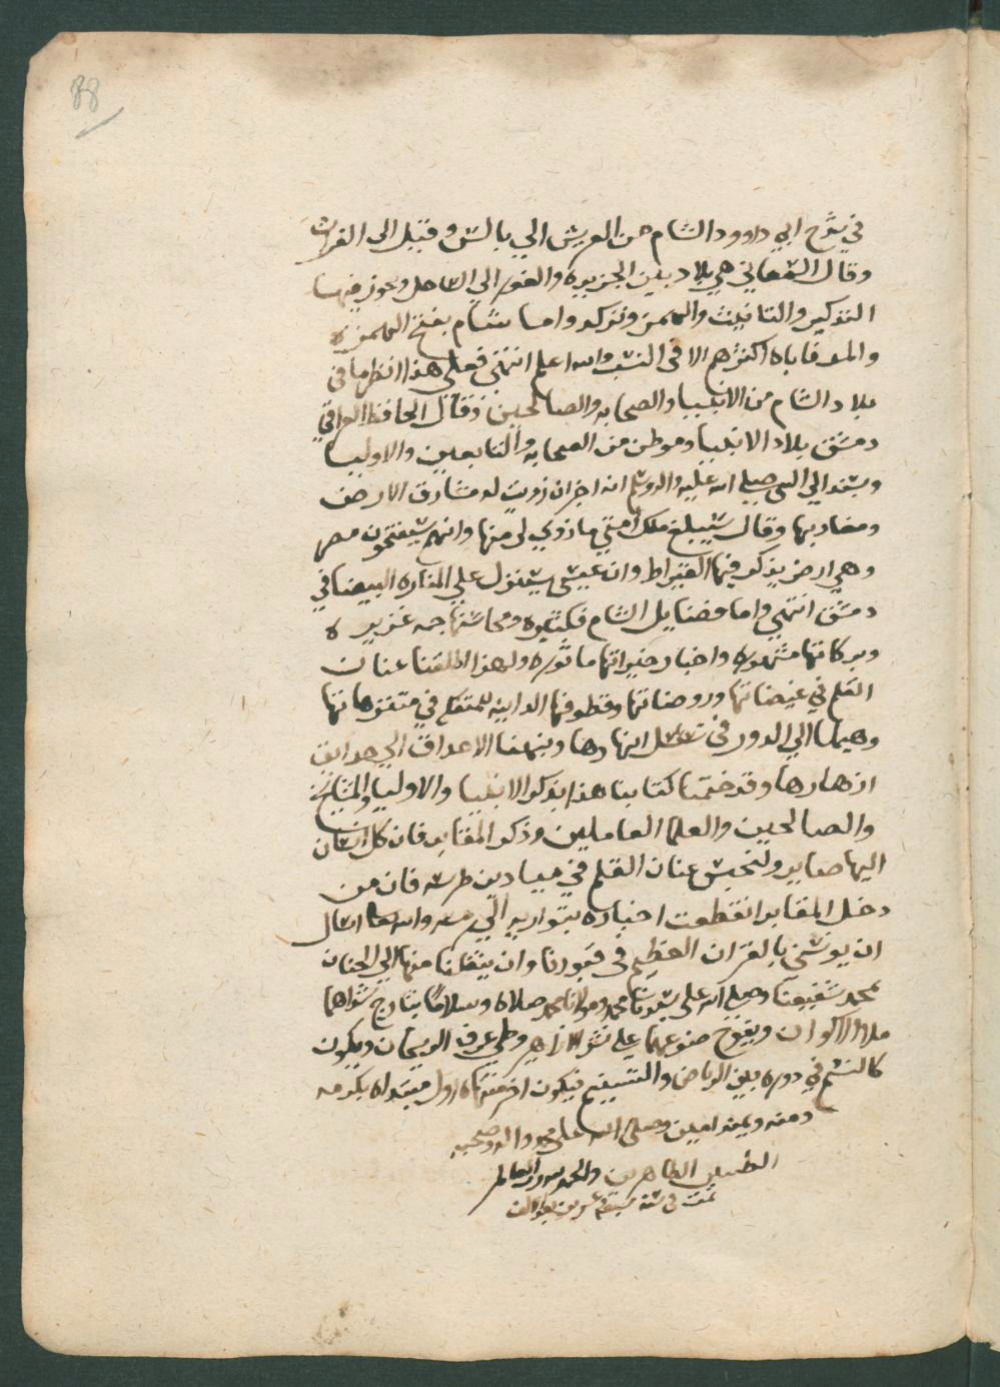 88
في شرح ابي داوود الشام من العريش الي بالس وقيل الي الفرات
وقال السمعاني هي بلاد بين الجزيره والغور الي الساحل ويجوز فيها
التذكير والتانيث والهمز وتركه واما شام بفتح الهمزه
والمد فاباه اكثرهم الا في النسب والله اعلم انتهي فعلي هذا انظر ما في
بلاد الشام من الانبيا والصحابه والصالحين وقال الحافظ العراقي
دمشق بلاد الانبيا وموطن من الصحابه والتابعين والاوليا
ويسند الي النبي صلي الله عليه واله وسلم انه اخبر ان زويت له مشارق الارض
ومغاربها وقال سيبلغ ملك امتي ما زوي لي منها وانهم سيفتحون مصر
وهي ارض يذكر فيها القيراط وان عيسي سينزل علي المناره البيضا في
دمشق انتهي واما فضايل الشام فكثيره ومحاسنها جمه غزيره
وبركاتها مشهوره واخبار خيراتها ماثوره ولهذا اطلقنا عنان
القلم في غيضاتها وروضاتها وقطوفها الدانيه للمتفكه في متنزهاتها
وهيمنا الي الدور في انهارها ونبهنا الاحداق الي حدايق
ازهارها وقد ختمنا كتابنا هذا بذكر الانبيا والاوليا والمشايخ
والصالحين والعلما العاملين وذكر المقابر فان كل انسان
اليها صاير ولنحبس عنان القلم في ميادين طرسه فان من
دخل المقابر انقطعت اخباره بتواريه الي رمسه والله اسال
ان يونسني بالقران العظيم في قبورنا وان ينقلنا منها الي الجنان
بمحمد شفيعنا وصلي الله علي سيدنا محمد ومولانا محمد صلاه وسلاما يتارج شذاهما
ملا الاكوان ويفوح ضوعهما علي نشر الازاهر وطي عرف الريحان ويكون
كالنسيم في دوره بين الرياض والتنسيم فيكون اخر منتهاه اول مبتداه بكرمه
ومنه ويمنه امين وصلي الله علي محمد واله وصحبه
الطيبين الطاهرين والحمد لله رب العالمين
تمت في سنه سبعة عشر بعد الالف